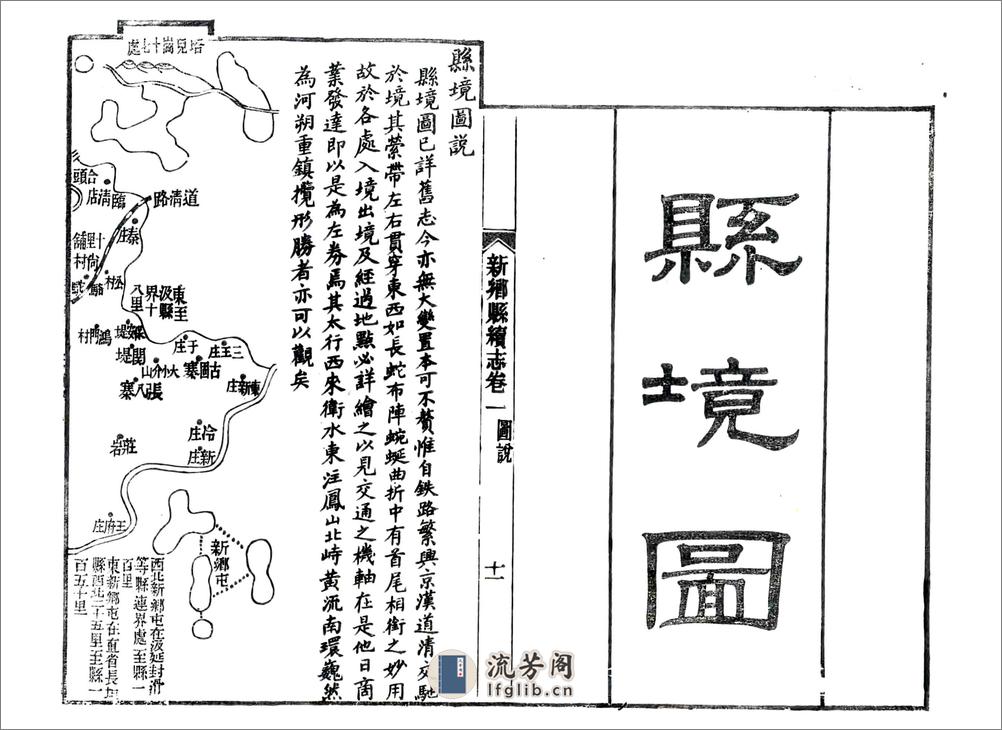 縣境圖
新鄉縣續志卷一 圖說
十一
縣境圖説
縣境圖已詳舊志今亦無大變置本可不贅惟自鉄路繁興京漢道清交馳
於境其縈帶左右貫穿東西如長蛇布陣蜿蜒曲折中有首尾相銜之妙用
故於各處入境出境及經過地點必詳繪之以見交通之機軸在是他日商
業發達即以是為左券焉其太行西來衛水東注鳳山北峙黃流南環巍然
為河朔重鎮攬形勝者亦可以觀矣
塔兒崗十七處
合頭
臨清店
道清路
秦庄
十里舖
尚村
東至汲縣界十八里
鴻門村
關堤
于庄
三王庄
古固寨
大小介山
張八寨
東新庄
冷庄
新庄
莊岩
王府庄
新鄉屯
西北新鄉屯在汲延封滑
等縣連界處至縣一
百里
東新鄉屯在直省長垣
縣西北二十五里至縣一
百五十里
流芳阁
lfglib.cn